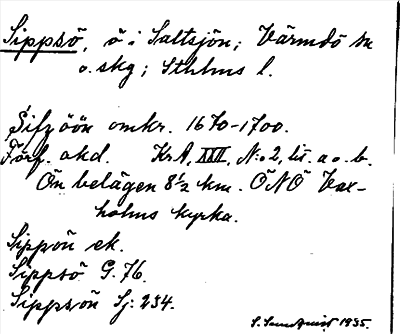 Sippsö, ö i Saltsjön; Värmdö sn
o. skg; Sthlms l.
Sifzöön omkr. 1670-1700.
Förf. okd. KrA, XXII, N:o 2, lit. a o. b.
Ön belägen 8½ km. ÖNÖ Vax-
holms kyrka.
Sippön ek.
Sippsö G. 76.
Sippsön Sj: 234.
1935.